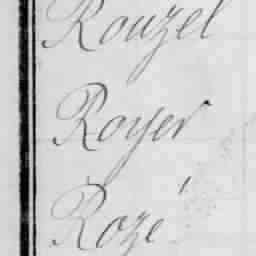 Rouzel
Royer
Rozé